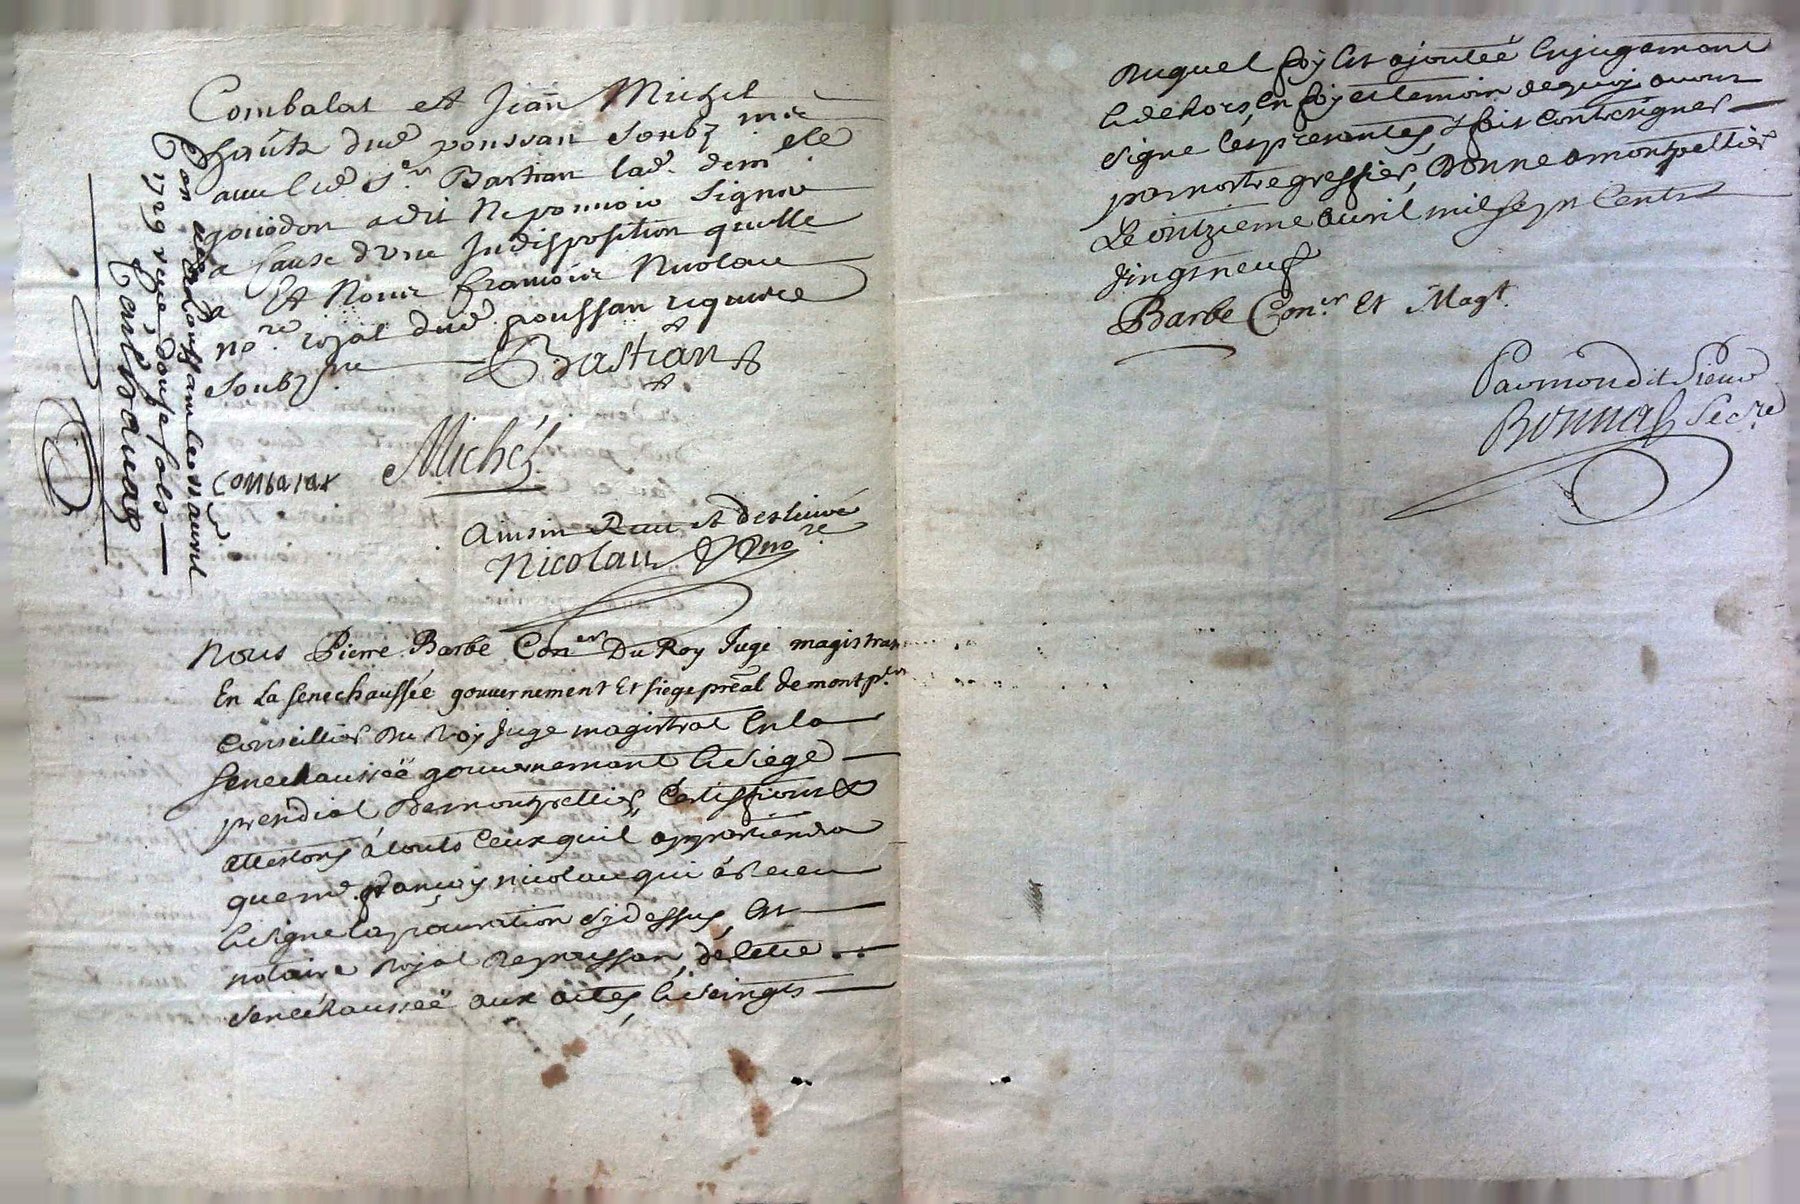 Combalat et Jean Michel
dud poussan Soubz.nes
avec led Sr Bastian lad. demle
gouidon a dit ne pouvoir signer
a cause dune Indisposition quelle
a Et Nous francois Nicolau
nore royal dud poussan requise
Soubz.ne
Bastian
Con alleLoussan le 11 avril
1729 reçu douse sols
Combalat
Michel
Ainsin et deslivré
Nicolau nore
Nous Pierre Barbe Coner Du Roy Juge magistrat
En La senechaussée gouvernement Et siege preal de montper
Conseillier du Roy Juge magistrat en la
senechaussée gouvernement & siege
presidial de montpellier, Certiffions &
attestons à touts ceux quil appartiendra
que me françoy nicolau qui à receu
& signe la procuration cy dessus, est
notaire Royal de poussan, de cette
senechaussée aux actes, & seings
duquel foy est ajoutée en jugement
& dehors, en foy & temoin dequoy avons
signe les presentes, & fait contresigner
par nostre greffier, Donne a montpellier
Le ontzieme avril mil sept cents
Vingt neuf
Barbe Coner et Magt.
Par mondit Sieur
Bonnal Secre